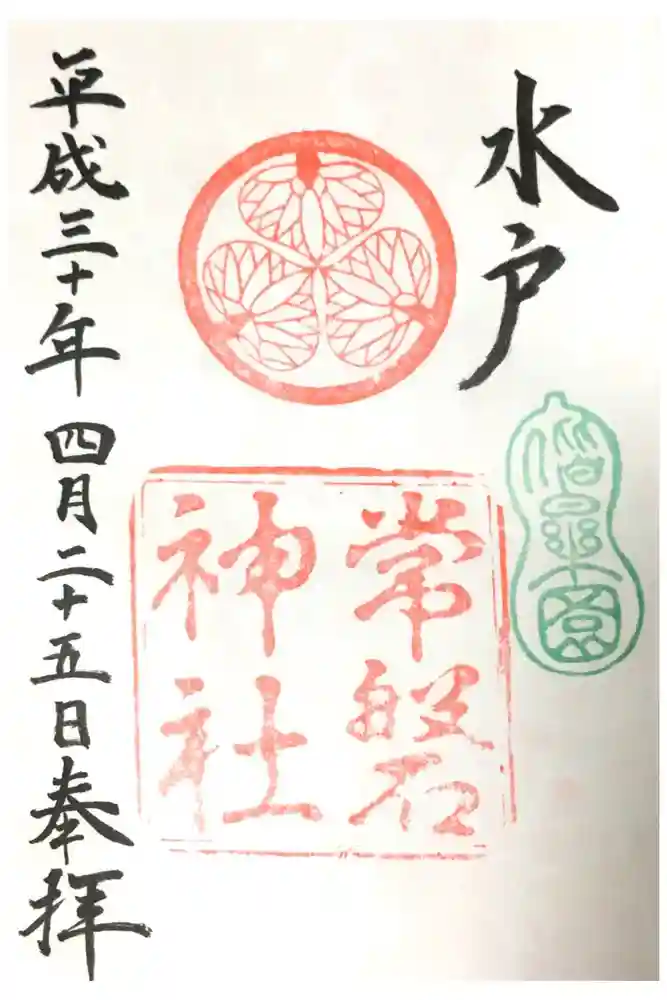 水戸
偕楽園
常磐
神社
平成三十年 四月二十五日奉拝